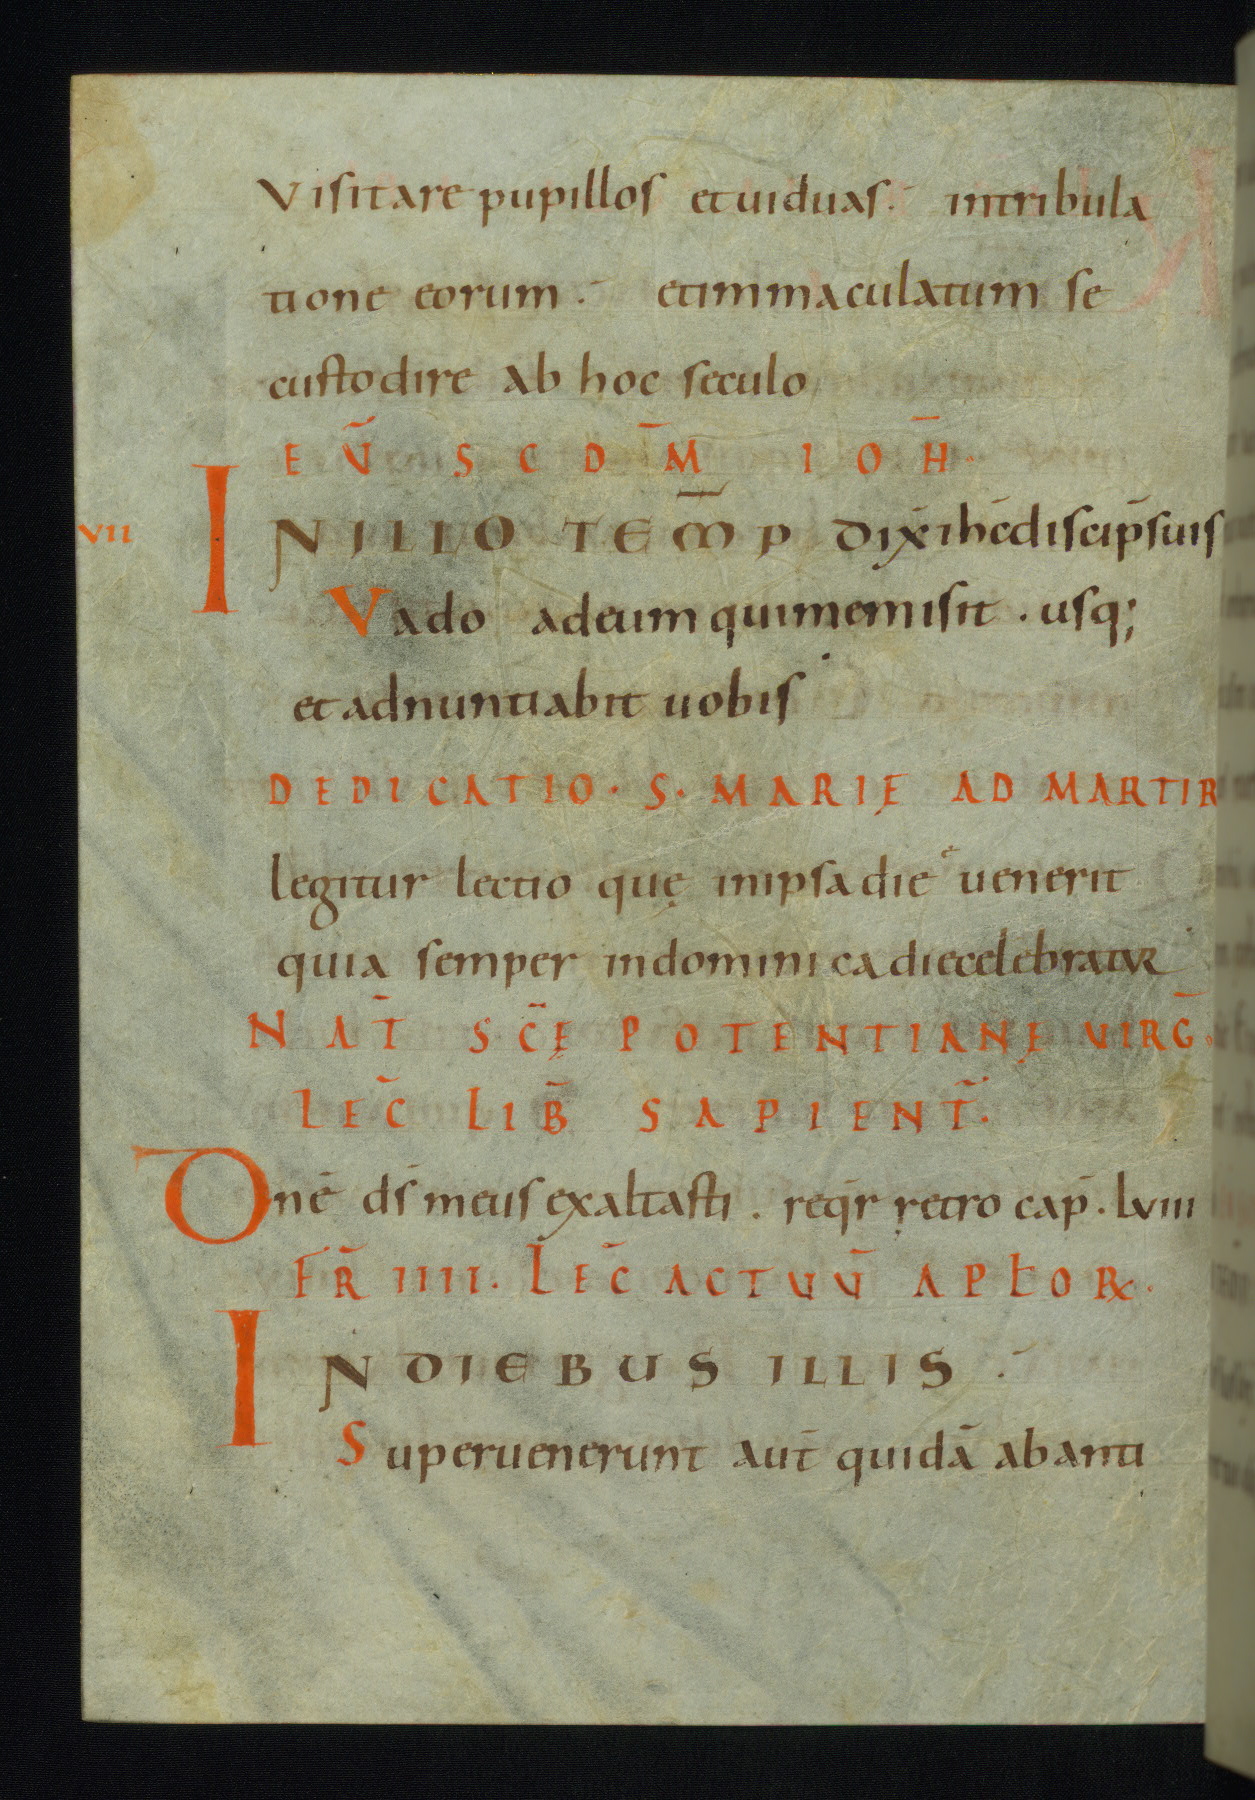 Visitare pupillos etuiduas. intribula
tione eorum. etimmaculatum se
custodire ab hoc seculo
EṼ SCDM̄ IOH̄.
VII INILLO TEM̄P dix̄ ihc̄ discip̄ suis
Vado adeum quimemisit . usq;
et adnuntiabit uobis
DEDICATIO. S. MARIĘ AD MARTIR
legitur lectio quę inipsa die uenerit
quia semper indominica diecelebratur
NAT̄ SC̄Ę POTENTIANĘ VIRḠ.
LEC̄ LIB̄ SAPIENT̄.
Dnē ds̄ meus exaltasti . reqr̄ retro cap̄. lviii
FR̄ IIII. LEC̄ ACTUŪ APŁOꝜ.
INDIEBUS ILLIS .
Superuenerunt aut̄ quidā ab anti